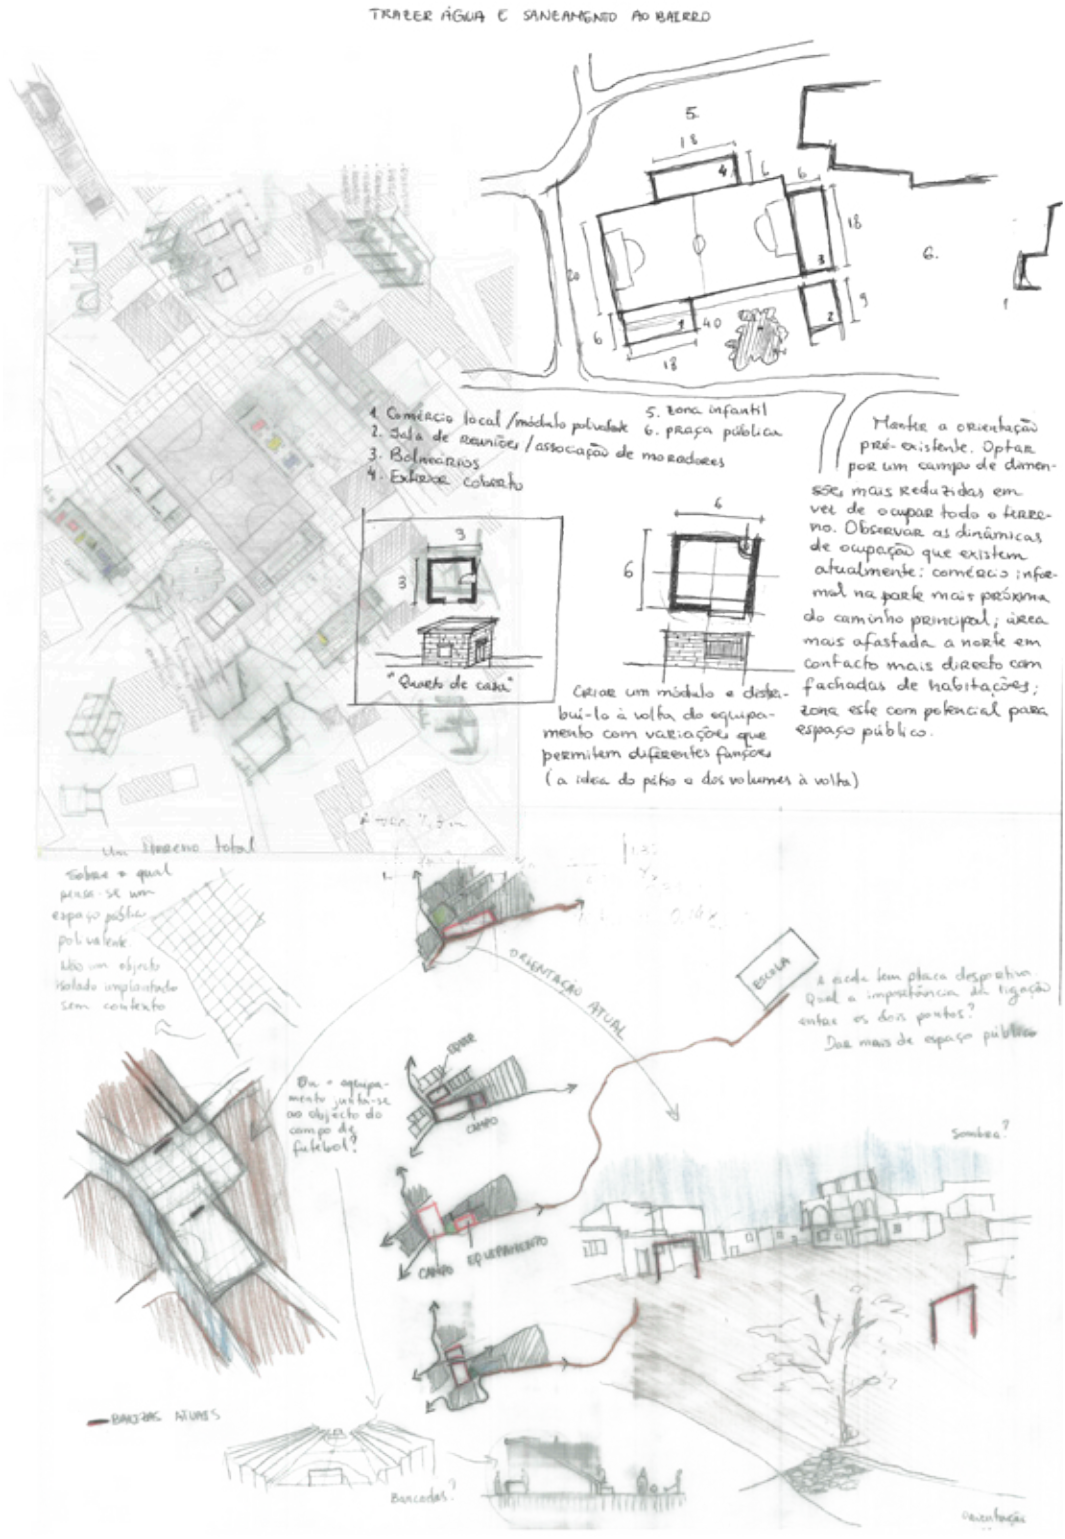 TRAZER ÁGUA E SANEAMENTO AO BAIRRO
5.
18
4
6
6
18
3
6.
20
9
2
1
40
6
18
1. Comércio local / módulo polivalente
2. Sala de Reuniões / associação de moradores
3. Balneários
4. Exterior coberto
5. zona infantil
6. praça pública
Manter a orientação
pré-existente. Optar
por um campo de dimen-
sões mais reduzidas em
vez de ocupar todo o terre-
no. Observar as dinâmicas
de ocupação que existem
atualmente: comércio infor-
mal na parte mais próxima
do caminho principal; área
mais afastada a norte em
contacto mais directo com
fachadas de habitações;
zona este com potencial para
espaço público.
3
3
"Quarto de casa"
6
6
Criar um módulo e distri-
buí-lo à volta do equipa-
mento com variações que
permitem diferentes funções
(a ideia do pátio e dos volumes à volta)
Um terreno total
sobre o qual
pensa-se um
espaço público
polivalente.
Não um objecto
isolado implantado
sem contexto
ORIENTAÇÃO ATUAL
ESCOLA
A escola tem placa desportiva.
Qual a importância da ligação
entre os dois pontos?
Dar mais de espaço público
Ou o equipa-
mento junta-se
ao objecto do
campo de
futebol?
EQUIP.
CAMPO
CAMPO
EQUIPAMENTO
Sombra?
BALIZAS ATUAIS
Bancadas?